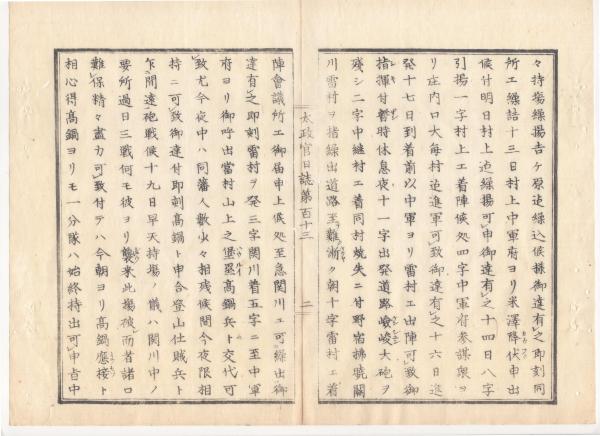 々持場繰揚吉ケ原迠繰込候様御達有之即刻同
所エ繰詰十三日村上中軍府ヨリ米澤降伏申出
候付明日村上迠繰揚可申御達有之十四日八字
引揚一字村上エ着陣候処四字中軍府参謀衆ヨ
リ庄内口大毎村迠進軍可致御達有之十六日進
発十七日到着前以中軍ヨリ雷村エ出陣可致御
指揮付暫時休息夜十一字出発道路嶮峻大砲ヲ
残シ二字中継村エ着同村焼失ニ付野宿拂暁關
川雷村ヲ指繰出道路至難漸ク朝十字雷村エ着
太政官日誌第百十三
二
陣會議所エ御届申上候処至急関川エ可繰出御
達有之即刻雷村ヲ発三字関川着五字ニ至中軍
府ヨリ御呼出當村山上之堡壘高鍋兵ト交代可
致尤今夜中ハ同藩人數少々相残候間今夜限相
持ニ可致御達付即刻高鍋ト申合登山仕賊兵ト
乍間遠砲戦候十九日早天持場ノ儀ハ関川中ノ
要所過日三戦何モ彼ヨリ襲来此場破而者諸口
難保精々盡力可致付テハ今朝ヨリ高鍋應接ト
相心得高鍋ヨリモ一分隊ハ始終持出可申旨中